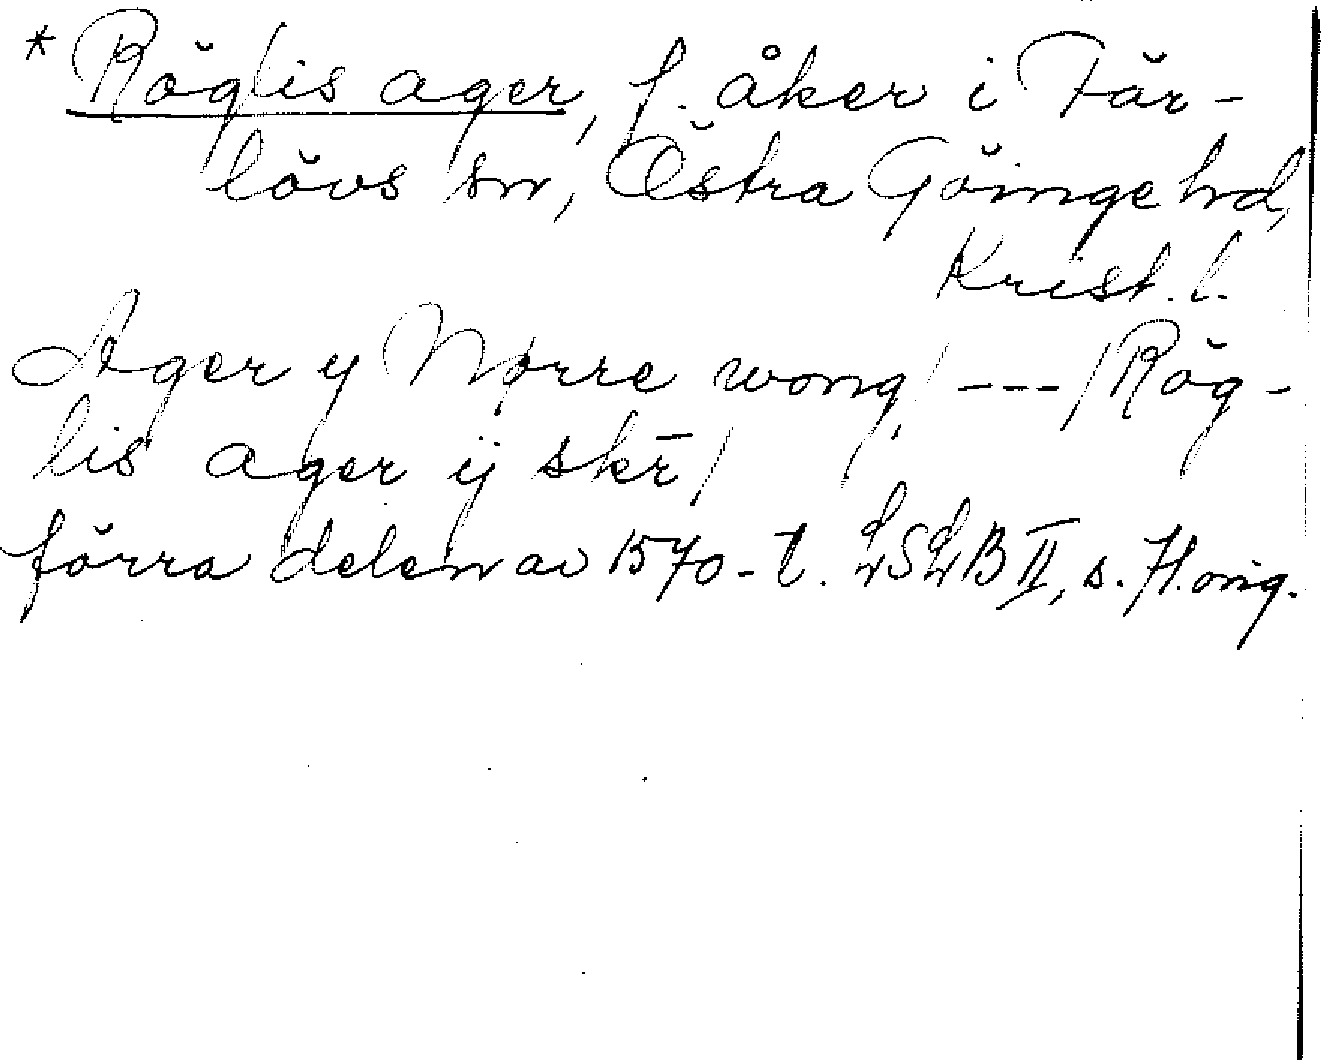 * Röglis ager, f. åker i Fär-
lövs sn, Östra Göinge hd,
Krist. l.
Ager y Nørre wong / --- / Rög-
lis ager ij skr̄ /
förra delen av 1570-t. LSLB II, s. 71. orig.